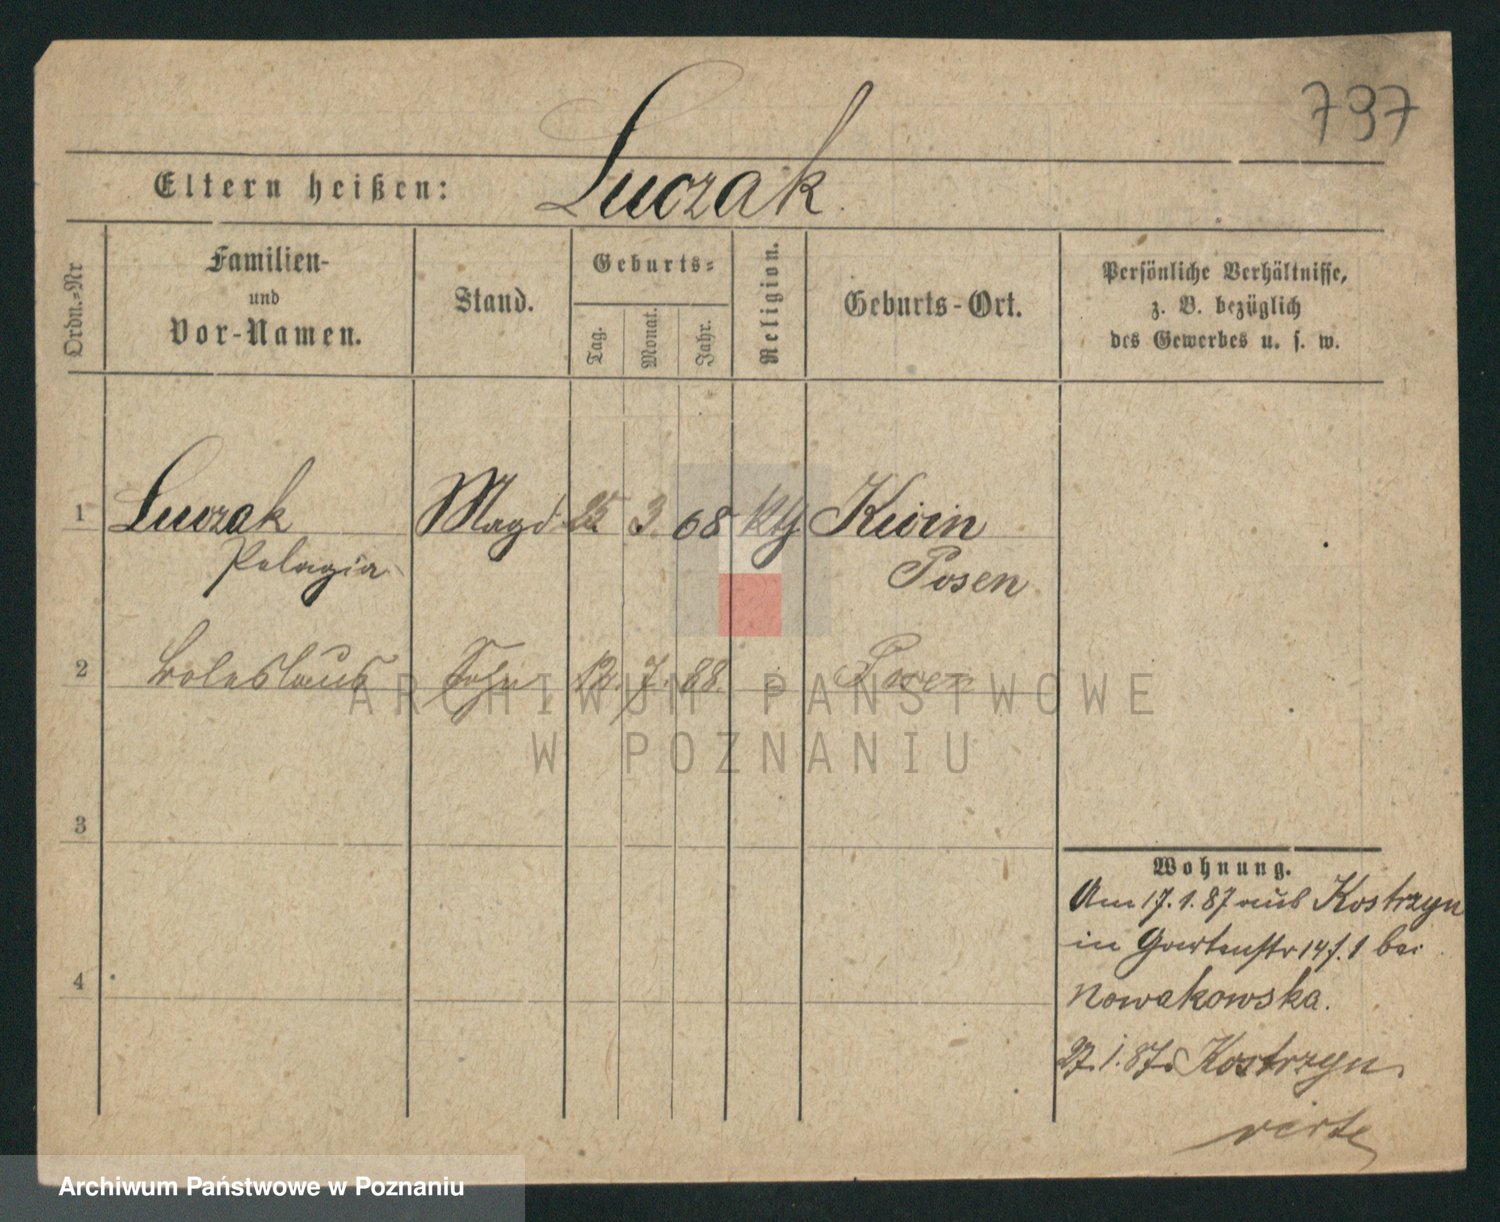 797
Luczak
Eltern heißen:
Ordn.-Nr
Familien-
und
Vor-Namen.
Stand.
Geburts-
Tag.
Monat.
Jahr.
Religion.
Geburts-Ort.
Persönliche Verhältnisse,
z. B. bezüglich
des Gewerbes u. s. w.
1 Luczak Magd 25 3. 68 Posen
Pelagia
2 Boleslaus Sohn 12. 7. 88. Posen
ARCHIWUM PAŃSTWOWE
W POZNANIU
3
4
Wohnung.
Am 17.1.87 aus Kostrzyn
in Gartenstr 14 bei
Nowakowska.
27.1.87. Kostrzyn
verte
Archiwum Państwowe w Poznaniu